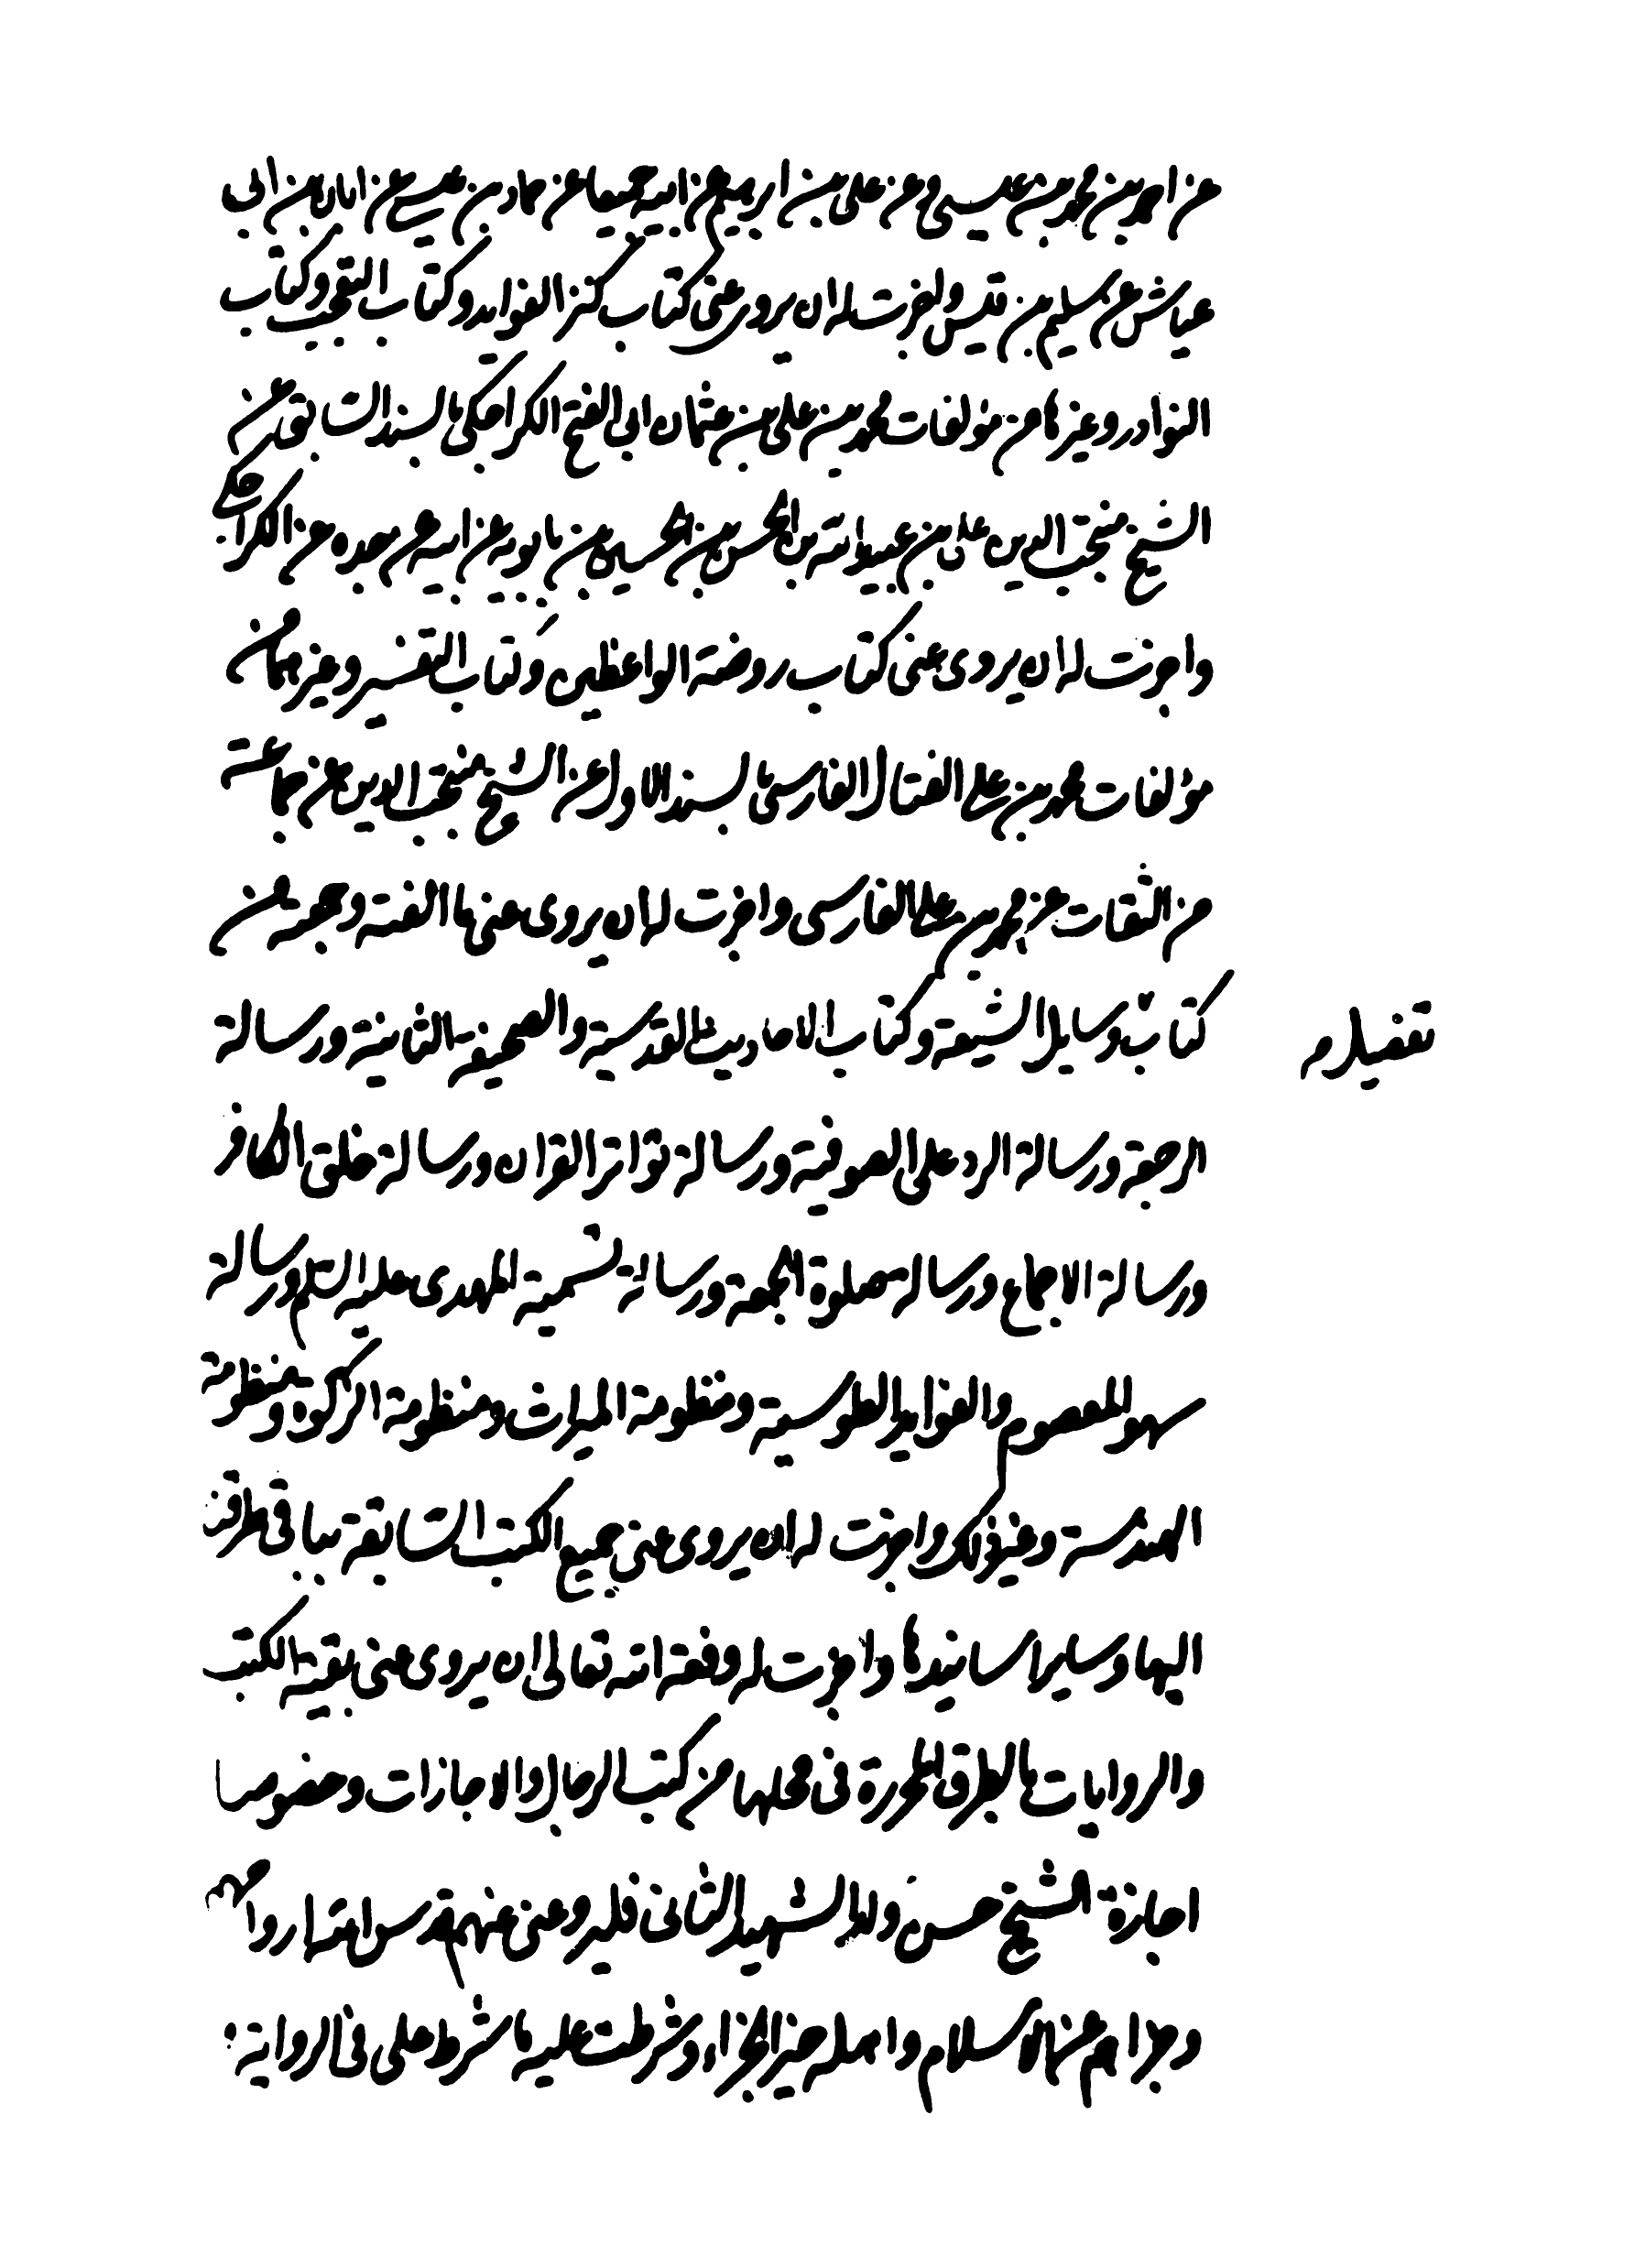 عن احمد بن محمد بن عيسى وعن على بن ابرهيم عن ابيه جميعا عن حماد بن عيسى عن ابان بن ابى
عياش عن سليم بن قيس واجزت له ان يروى عنى كتاب كنز الفوايد وكتاب التعجب وكتاب
النوادر وغيرها من مؤلفات محمد بن على بن عثمان ابى الفتح الكراجكى بالسند السابق عن
الشيخ منتجب الدين على بن عبيد الله بن الحسن بن الحسين بن بابويه عن ابيه عن جده عن الكراجكى
واجزت له ان يروى عنى كتاب روضة الواعظين وكتاب التفسير وغيرهما من
مؤلفات محمد بن على الفتال الفارسى بالسند الاول عن الشيخ منتجب الدين عن جماعة
من الثقات عن محمد بن على الفارسى واجزت له ان يروى عنى ما الفته وجمعته من
كتاب وسايل الشيعة وكتاب الاحاديث القدسية والصحيفة الثانية ورسالة
تفصيل م
الرجعة ورسالة الرد على الصوفية ورسالة تواتر القران ورسالة خلق الكافر
ورسالة الاجماع ورسالة صلوة الجمعة ورسالة تسمية المهدى عليه السلم ورسالة
سهو المعصوم والفوايد الطوسية ومنظومة الميراث ومنظومة الزكوة ومنظومة
الهندسة وغير ذلك واجزت له ان يروى عنى جميع الكتب السابقة بباقى طرقنا
اليها وساير اسانيدها واجزت له وفقه الله تعالى ان يروى عنى بقية الكتب
والروايات بالطرق المحررة فى محلها من كتب الرجال والاجازات وخصوصا
اجازة الشيخ حسن ولد الشهيد الثانى فليرو عنى عنهم قدس الله ارواحهم
وجزاهم عن الاسلام واهله خير الجزاء وشرطت عليه ما شرط على فى الرواية